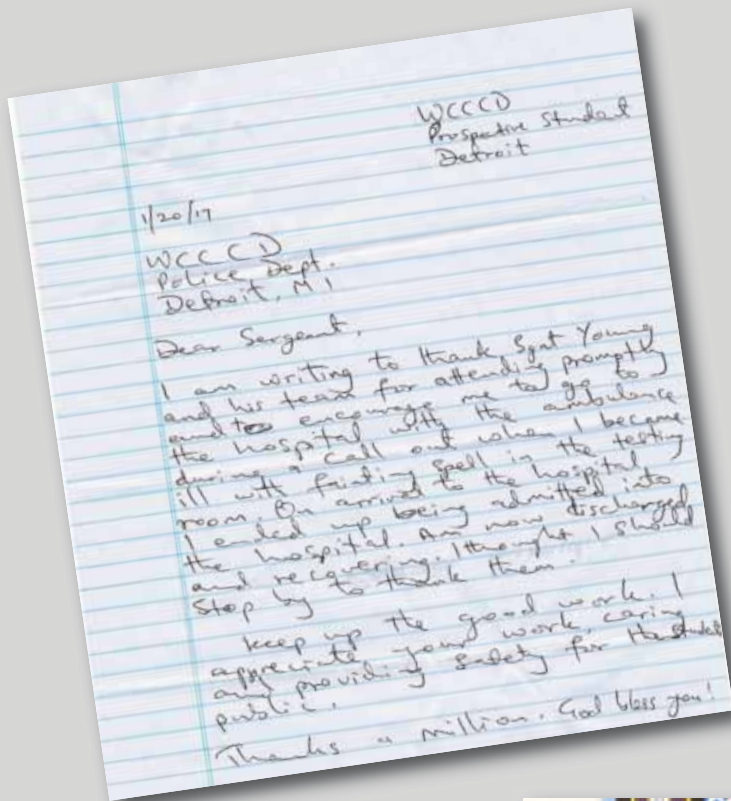 WCCCD
Prospective Student
Detroit
1/20/17
WCCCD
Police Dept.
Detroit, MI
Dear Sergeant,
I am writing to thank Sgnt Young
and his team for attending promptly
and to encourage me to go to
the hospital with the ambulance
during a call out when I became
ill with fainting spell in the testing
room. On arrival to the hospital
I ended up being admitted into
the hospital. Am now discharged
and recovering. I thought I should
stop by to thank them.
Keep up the good work. I
appreciate your work, caring
and providing safety for the students
public.
Thanks a million. God bless you!